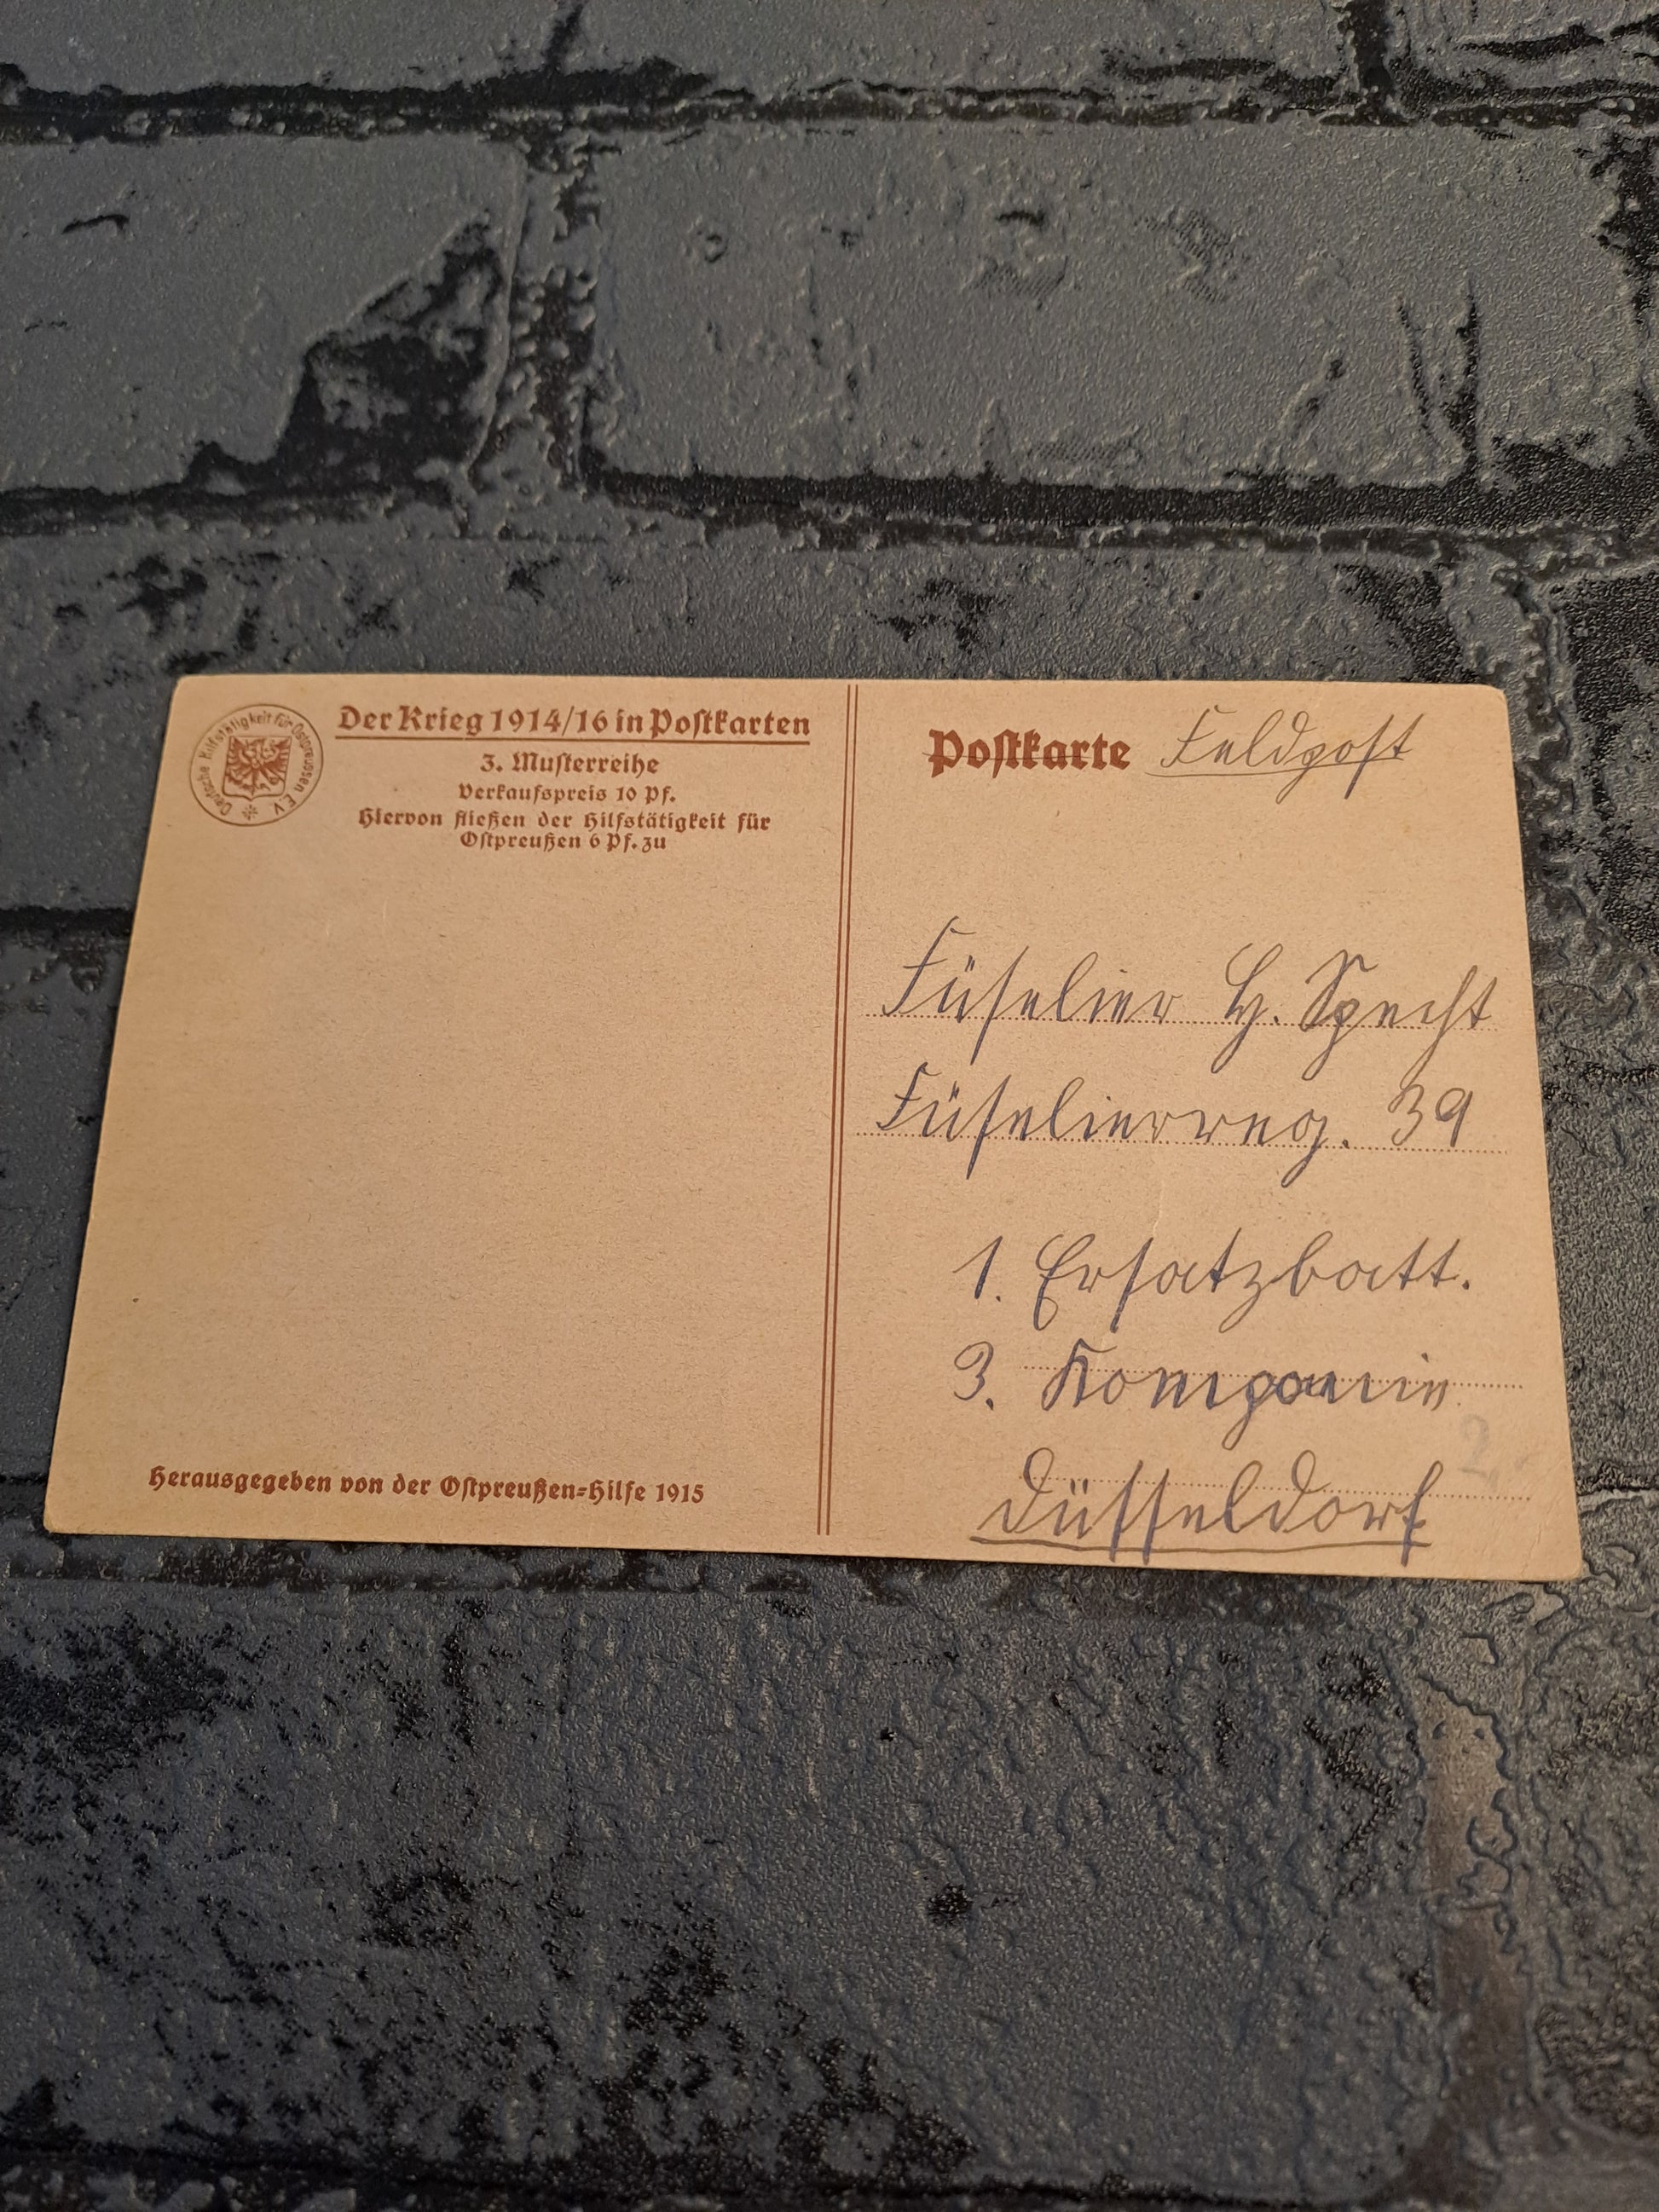 Deutsche Hilfstätigkeit für Ostpreussen E.V.
Der Krieg 1914/16 in Poſtkarten
3. Muſterreihe
Verkaufspreis 10 Pf.
Hiervon fließen der Hilfstätigkeit für
Oſtpreußen 6 Pf. zu
Herausgegeben von der Oſtpreußen-Hilfe 1915
Poſtkarte Feldpoſt
Füſelier H. Specht
Füſelierreg. 39
1. Erſatzbatt.
3. Kompanie
2
Düſſeldorf